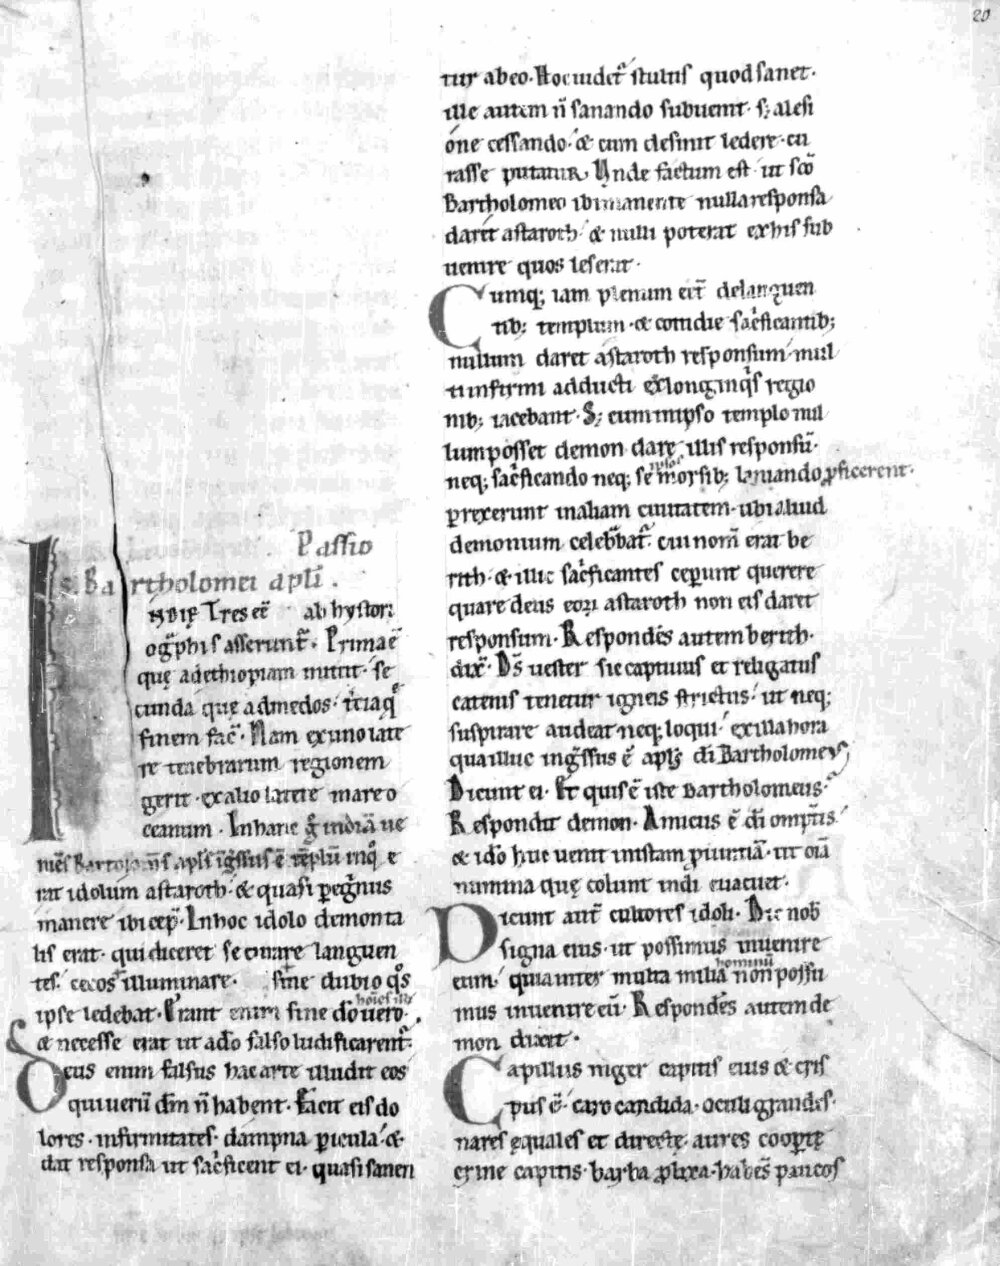 20
Passio
S. Bartholomei apłi.
INDIĘ Tres eē ab hystori
og̅phis asserunt̃. Prima ē
quę ad ethiopiam mittit. se
cunda quę ad medos. t̃tia q̨
finem fac̃. Nam ex uno late
re tenebrarum regionem
gerit. ex alio latere mare o
ceanum. In hanc g̊ indiā ue
niēs Bartolom̅s apłs ig̃ssus ē tēplū in q̊ e
rat idolum astaroth. & quasi peg̃nus
manere ibi cep̃. In hoc idolo demon ta
lis erat. qui diceret se curare languen
tes. cecos illuminare. sine dubio q̊s
ipse ledebat. Erant enim sine d̅o uero.
hoīes illi
& necesse erat ut a d̅o falso ludificarent̃.
Deus enim falsus hac arte illudit eos
qui uerū dm̅ n̅ habent. Facit eis do
lores. infirmitates. dampna pericula. &
dat responsa ut sac̃ficent ei. quasi sanen
tur ab eo. Hoc uidet̃ stultis quod sanet.
ille autem n̅ sanando subuenit. s; a lesi
one cessando. & cum desinit ledere. cu
rasse putatur. Unde factum est ut sc̅o
Bartholomeo ibi manente nulla responsa
daret astaroth. & nulli poterat ex his sub
uenire quos leserat.
Cumq; iam plenum eēt̃ de languen
tib; templum. & cotidie sac̃ficantib;
nullum daret astaroth responsum. mul
ti infirmi adducti ex longinq̊s regio
nib; iacebant. S; cum in ipso templo nul
lum posset demon dare illis responsū.
neq; sac̃ficando neq; se ipsos morsib; laniando p̱ficerent.
perrexerunt in aliam ciuitatem. ubi aliud
demonium celebbat̃. cui nom̅ erat be
rith. & illic sac̃ficantes ceperunt querere
quare deus eoꝝ astaroth non eis daret
responsum. Respondēs autem berith.
dix̃. Ds̅ uester sic captiuus et religatus
catenis tenetur igneis strictus. ut neq;
suspirare audeat neq; loqui. ex illa hora
qua illuc ing̃ssus ē apłs di̅ Bartholomeus
Dicunt ei. Et quis ē iste Bartholomeus.
Respondit demon. Amicus ē di̅ omp̅tis.
& ido̅ huc uenit in istam p̱uintiā. ut om̅a
numina quę colunt indi euacuet.
Dicunt aut̃ cultores idoli. Dic nob̅
signa eius. ut possimus inuenire
eum. quia inter multa milia hominū non possu
mus inuenire eū. Respondēs autem de
mon dixit.
Capillus niger capitis eius & cris
pus ē. caro candida. oculi grandes.
nares ęquales et directę. aures coop̱tę
crine capitis. barba p̱lixa. habēs paucos